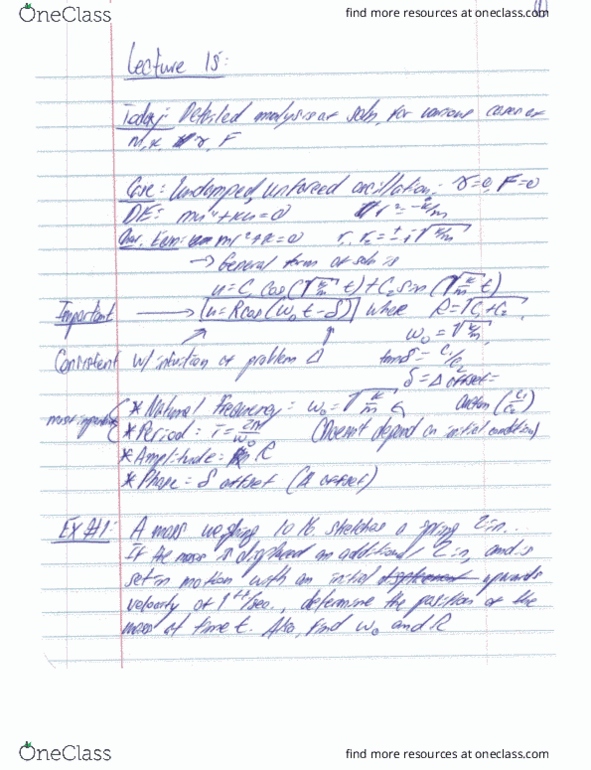 OneClass
find more resources at oneclass.com
(1)
Lecture 15:
Today: Detailed analysis of soln, for various cases of
m, k, γ, F
Case: Undamped, unforced oscillation: γ=0, F=0
DE: mu''+ku=0 r²=-k/m
Char. Eqn: mr²+k=0 r₁, r₂=±i√k/m
→ General form of soln is
u=C₁cos(√k/m t)+C₂sin(√k/m t)
Important → u=Rcos(ω₀t-δ) where R=√C₁+C₂,
ω₀=√k/m,
Consistent w/ intuition of problem Δ tanδ=C₁/C₂
δ=Δ offset=
most important * Natural Frequency: ω₀=√k/m arctan(C₁/C₂)
* Period: T=2π/ω₀ (Doesn't depend on initial conditions)
* Amplitude: R
* Phase: δ offset (Δ offset)
EX #1: A mass weighing 10 lb. stretches a spring 2in.
If the mass is displaced an additional 2in, and is
set in motion with an initial upwards
velocity of 1ft/sec., determine the position of the
mass at time t. Also, find ω₀ and R
OneClass
find more resources at oneclass.com